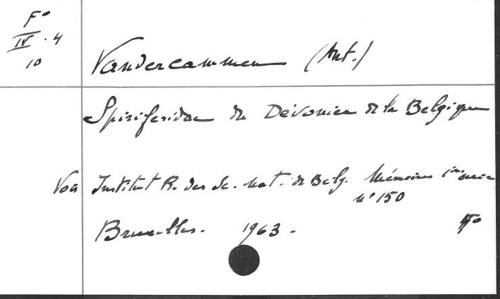 Fº
IV . 4
10
Vandercammen (Ant.)
Spiriferidae du Dévonien de la Belgique
Voir Institut R. des Sc. nat. de Belg. Mémoires
nº 150
Bruxelles. 1963.